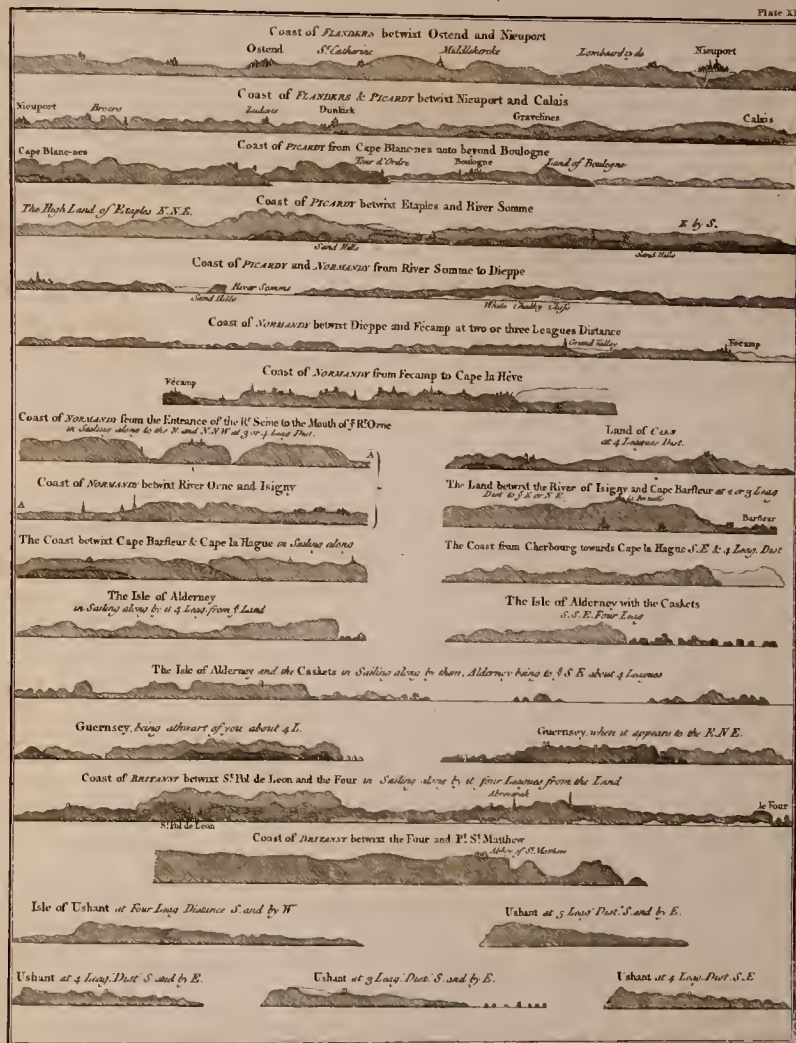 Plate XI
Coast of FLANDERS betwixt Ostend and Nieuport
Ostend St. Catherine Middlekercke Lombaerd tyde Nieuport
Coast of FLANDERS & PICARDY betwixt Nieuport and Calais
Nieuport Broers Zudcote Dunkirk Gravelines Calais
Coast of PICARDY from Cape Blanc-nes unto beyond Boulogne
Cape Blanc-nes Tour d'Ordre Boulogne Land of Boulogne
Coast of PICARDY betwixt Etaples and River Somme
The High Land of Etaples E.N.E. E by S.
Sand Hills Sand Hills
Coast of PICARDY and NORMANDY from River Somme to Dieppe
River Somme
Sand Hills White Chalky Cliffs
Coast of NORMANDY betwixt Dieppe and Fécamp at two or three Leagues Distance
Grand Valley Fécamp
Coast of NORMANDY from Fecamp to Cape la Hève
Fécamp
Coast of NORMANDY from the Entrance of the Rr. Seine to the Mouth of ye Rr. Orne
in Sailing along to the N. and N.N.W at 3 or 4 Leag Dist.
A
Land of CAEN
at 4 Leagues Dist.
Coast of NORMANDY betwixt River Orne and Isigny
A
The Land betwixt the River of Isigny and Cape Barfleur at 2 or 3 Leag
Dist to ye E or N E
Barfleur
The Coast betwixt Cape Barfleur & Cape la Hague in Sailing along
The Coast from Cherbourg towards Cape la Hague S.E & 4 Leag. Dist
The Isle of Alderney
in Sailing along by it 4 Leag. from ye Land
The Isle of Alderney with the Caskets
S.S.E. Four Leag
The Isle of Alderney and the Caskets in Sailing along by them, Alderney being to ye S E about 4 Leagues
Guernsey, being athwart of you about 4 L.
Guernsey, when it appears to the E.N.E.
Coast of BRITANNY betwixt St. Pol de Leon and the Four in Sailing along by it four Leagues from the Land
le Four
St. Pol de Leon
Coast of BRITANNY betwixt the Four and Pt. St. Matthew
Abbey of St. Matthew
Isle of Ushant at Four Leag Distance S. and by W
Ushant at 5 Leag. Dist. S. and by E.
Ushant at 4 Leag. Dist. S. and by E.
Ushant at 3 Leag. Dist. S. and by E.
Ushant at 4 Leag. Dist. S.E